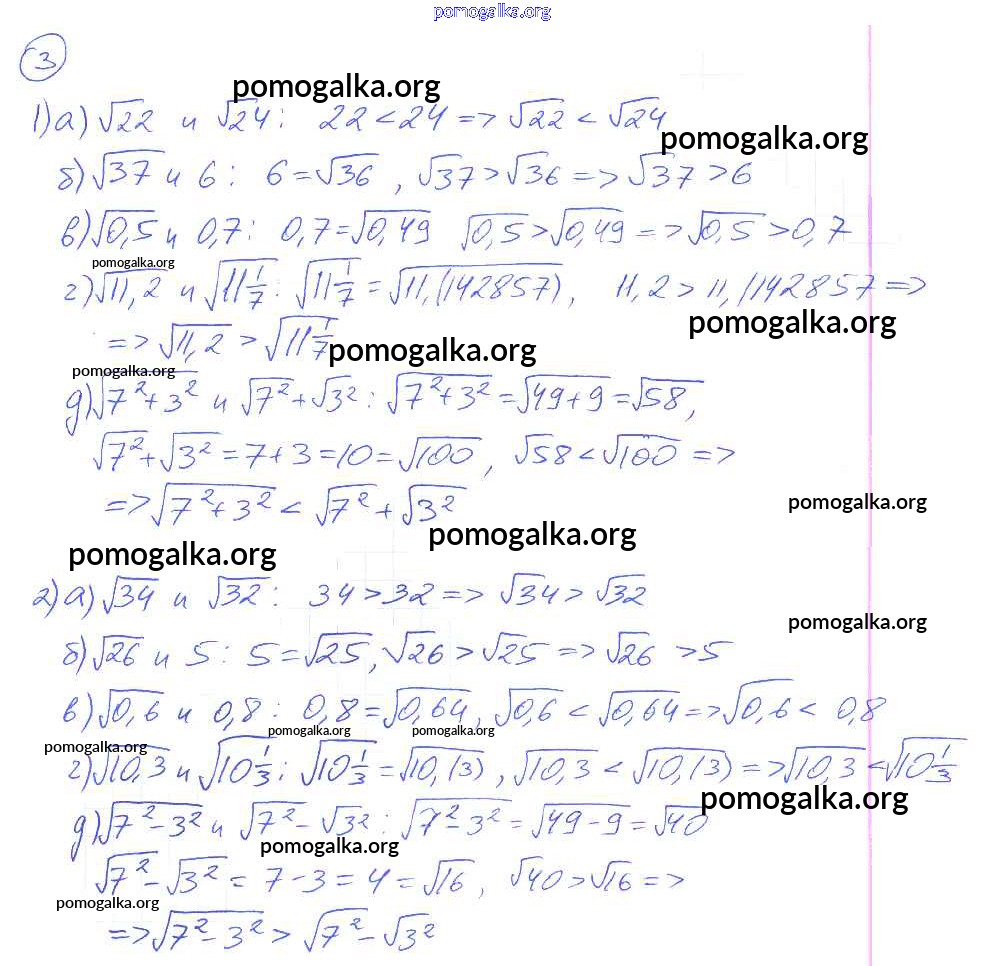 pomogalka.org
3
pomogalka.org
1) а) √22 и √24 : 22 < 24 => √22 < √24
pomogalka.org
б) √37 и 6 : 6 = √36 , √37 > √36 => √37 > 6
в) √0,5 и 0,7 : 0,7 = √0,49 √0,5 > √0,49 => √0,5 > 0,7
pomogalka.org
г) √11,2 и √11 1/7 : √11 1/7 = √11,(142857) , 11,2 > 11,(142857 =>
pomogalka.org
=> √11,2 > √11 1/7
pomogalka.org
pomogalka.org
д) √7²+3² и √7² + √3² : √7²+3² = √49+9 = √58 ,
√7² + √3² = 7+3 = 10 = √100 , √58 < √100 =>
pomogalka.org
=> √7²+3² < √7² + √3²
pomogalka.org
pomogalka.org
2) а) √34 и √32 : 34 > 32 => √34 > √32
pomogalka.org
б) √26 и 5 : 5 = √25 , √26 > √25 => √26 > 5
в) √0,6 и 0,8 : 0,8 = √0,64 , √0,6 < √0,64 => √0,6 < 0,8
pomogalka.org pomogalka.org
pomogalka.org
г) √10,3 и √10 1/3 : √10 1/3 = √10,(3) , √10,3 < √10,(3) => √10,3 < √10 1/3
pomogalka.org
д) √7²-3² и √7² - √3² : √7²-3² = √49-9 = √40
pomogalka.org
√7² - √3² = 7-3 = 4 = √16 , √40 > √16 =>
pomogalka.org
=> √7²-3² > √7² - √3²